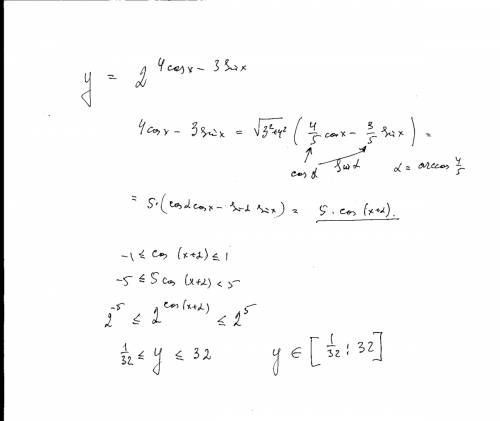 y = 2^{4cosx - 3sinx}
4cosx - 3sinx = \sqrt{3^2+4^2} ( \frac{4}{5} cosx - \frac{3}{5} sinx ) =
cosα sinα α = arccos \frac{4}{5}
= 5·(cosα cosx - sinα sinx) = 5·cos(x+α).
-1 ≤ cos (x+α) ≤ 1
-5 ≤ 5cos(x+α) < 5
2^{-5} ≤ 2^{cos(x+α)} ≤ 2^5
\frac{1}{32} ≤ y ≤ 32 y ∈ [\frac{1}{32}; 32]